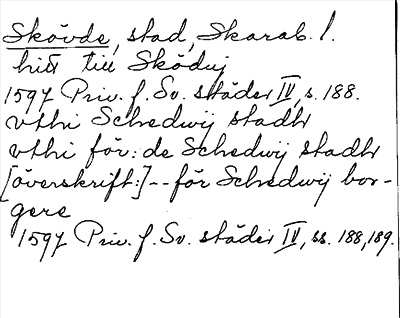 Skövde, stad, Skarab. l.
hitt till Sködwj
1597 Priv. f. Sv. städer IV, s. 188.
vthi Schedwij stadh
vthi för: de Schedwij stadh
[överskrift:] -- för Schedwij bor-
gere
1597 Priv. f. Sv. städer IV, ss. 188, 189.